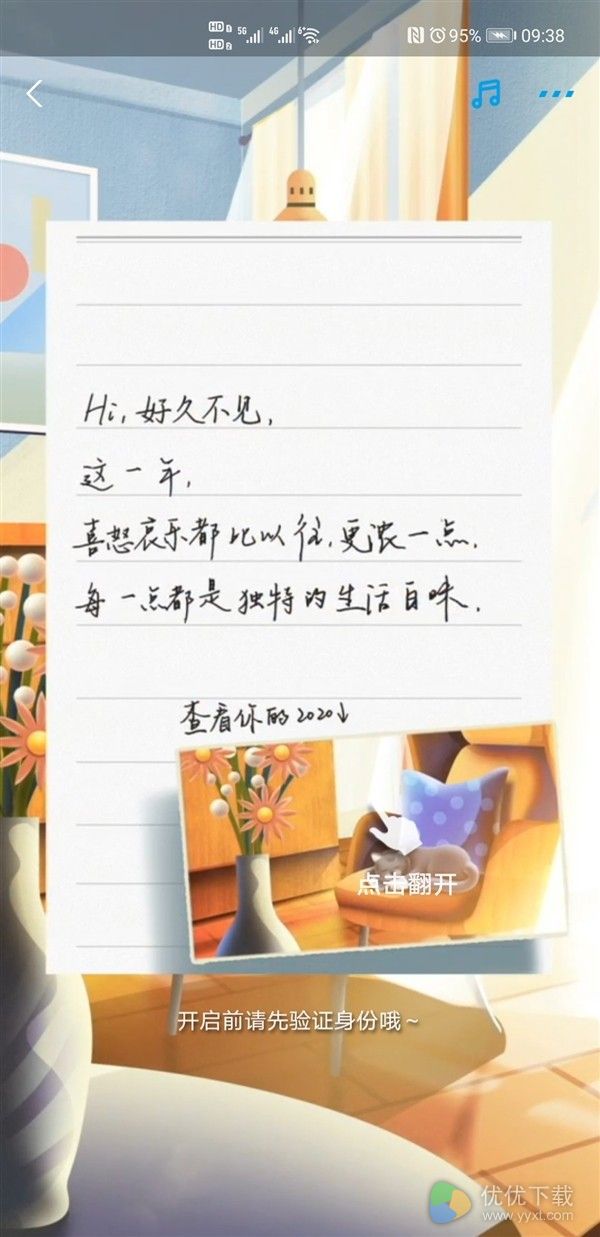 HD 1 5G 4G 6 95% 09:38
HD 2
Hi, 好久不见,
这一年,
喜怒哀乐都比以往,更浓一点.
每一点都是独特的生活百味.
查看你的2020↓
点击翻开
开启前请先验证身份哦~
优优下载
www.yyxt.com